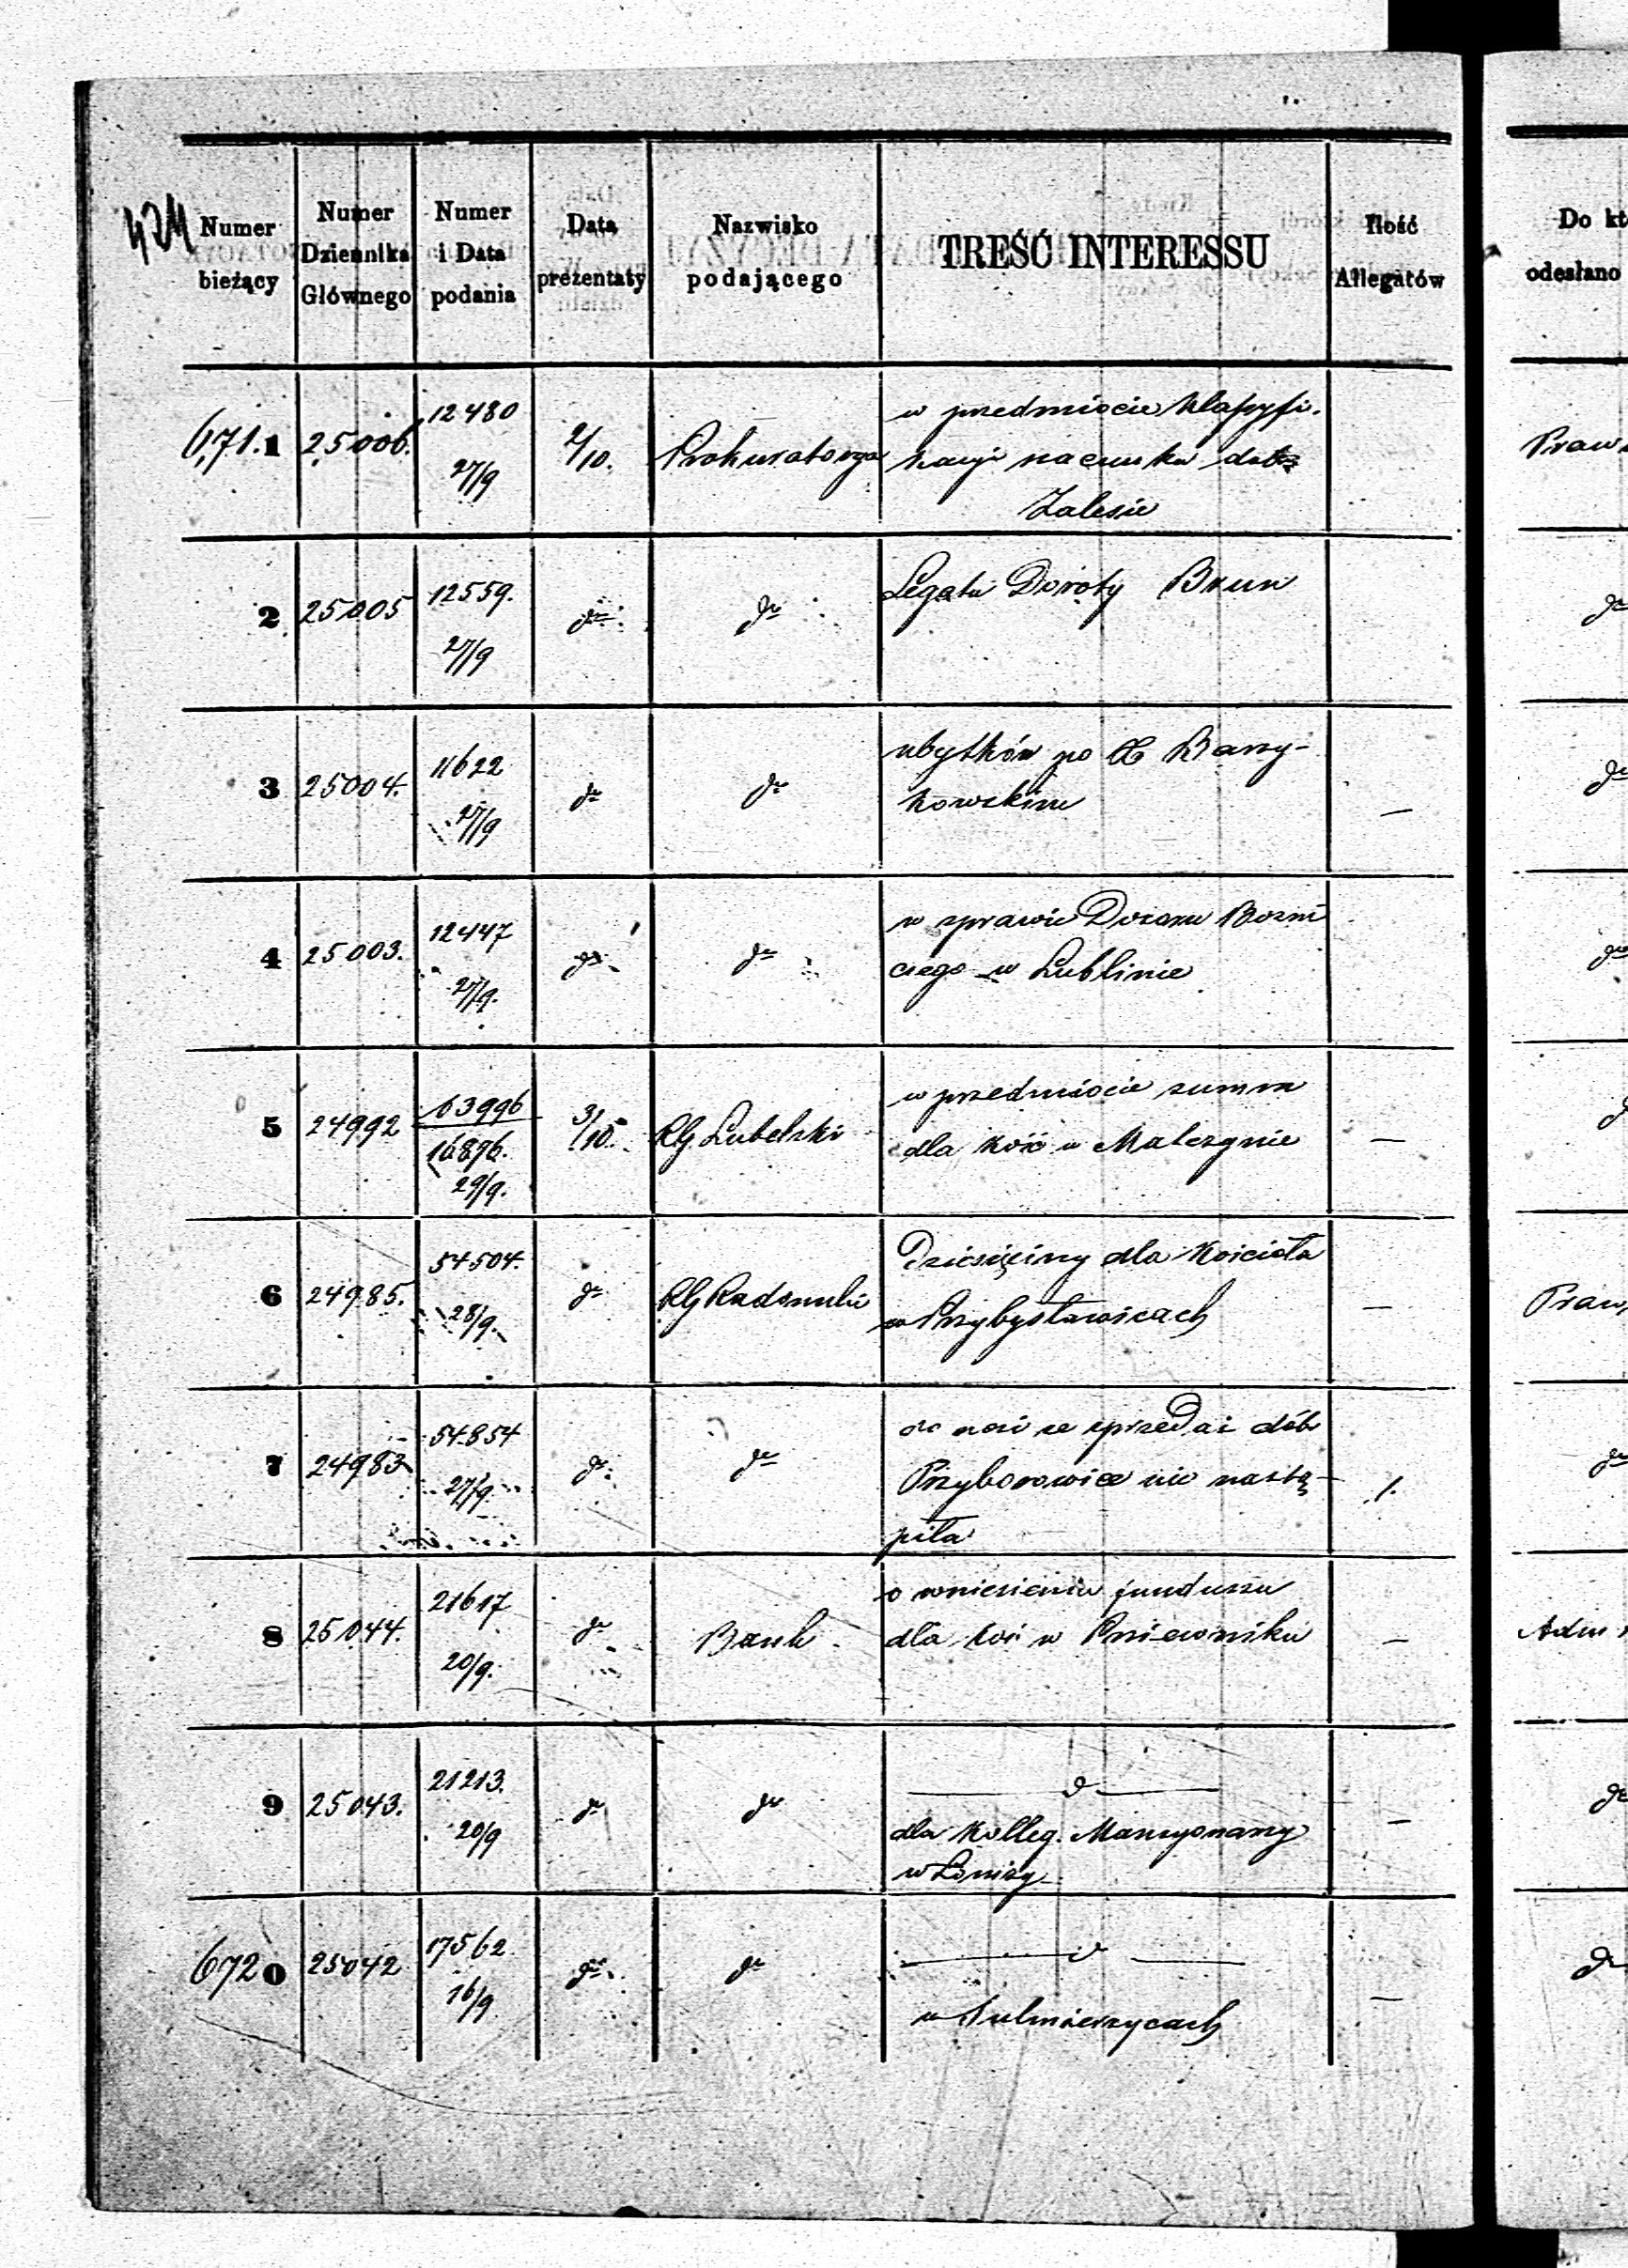 Numer bieżący | Numer Dziennika Głównego | Numer i Data podania | Data prezentaty | Nazwisko podającego | TREŚĆ INTERESSU | Ilość Allegatów | Do kt
odesłano
671.1 | 25006. | 12480 27/9 | 2/10. | Prokuratorya | w przedmiocie klassyfi-
kacyi szacunku dóbr
Zalesie | Praw
2 | 25005 | 12559. 27/9 | do | do | Legatu Doroty Brun | do
3 | 25004. | 11622 27/9 | do | do | ubytków po Barzy-
kowskim | — | do
4 | 25003. | 12447 27/9. | do | do | w sprawie Dozoru Bożni
czego w Lublinie | do
5 | 24992 | 63996 16896. 29/9. | 3/10. | RG. Lubelski | w przedmiocie summ
dla kośc w Matczynie | —
6 | 24985. | 54504. 28/9. | do | RG Radomski | Dziesięciny dla kościoła
w Przybysławicach | — | Praw
7 | 24983 | 54854 27/9. | do | do | do nosi że sprzedaż dób
Przyborowice nie nastą-
piła | 1. | do
8 | 25044. | 21617 20/9. | do | Bank | o wniesieniu funduszu
dla koś w Pniewniku | — | Adm
9 | 25043. | 21213. 20/9 | do | do | — d —
dla Kolleg. Mansyonarzy
w Łomży | — | do
6720 | 25042 | 17562. 16/9 | do | do | — d —
w Sulmierzycach | — | do